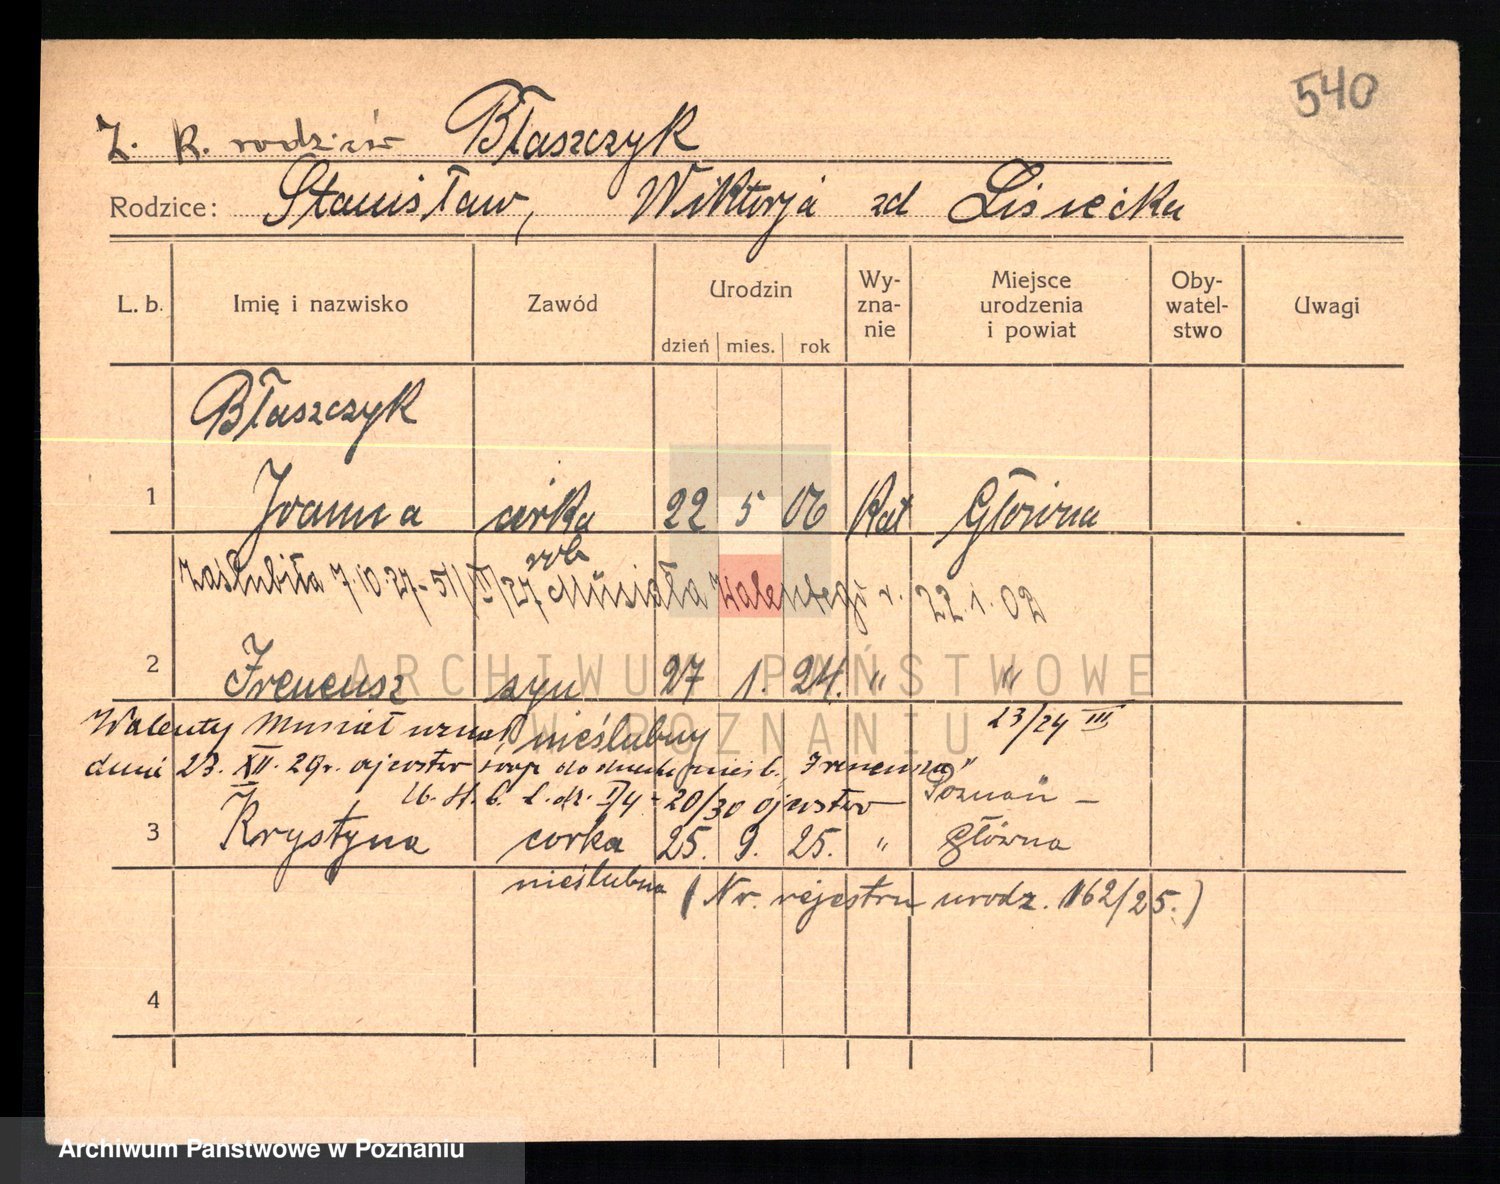 540
Z. K. rodziców Błaszczyk
Rodzice: Stanisław, Wiktorja zd Lisiecka
L. b. Imię i nazwisko Zawód Urodzin dzień mies. rok Wy-zna-nie Miejsce urodzenia i powiat Oby-watel-stwo Uwagi
Błaszczyk
1 Joanna córka 22 5 06 Kat Główna
rob
zaślubiła 7.10.27 - 51/III/27 Musiała Walentego r. 22.1.02
2 Ireneusz syn 27 1. 24. " "
Walenty Musiał uznał nieślubny 23/24 III
dnia 23. XII. 29 r. ojcostwo do Ireneusza"
20/30 ojcostwo Poznań -
3 Krystyna córka 25. 9. 25. " Główna
nieślubna (Nr. rejestru urodz. 162/25.)
4
ARCHIWUM PAŃSTWOWE
W POZNANIU
Archiwum Państwowe w Poznaniu